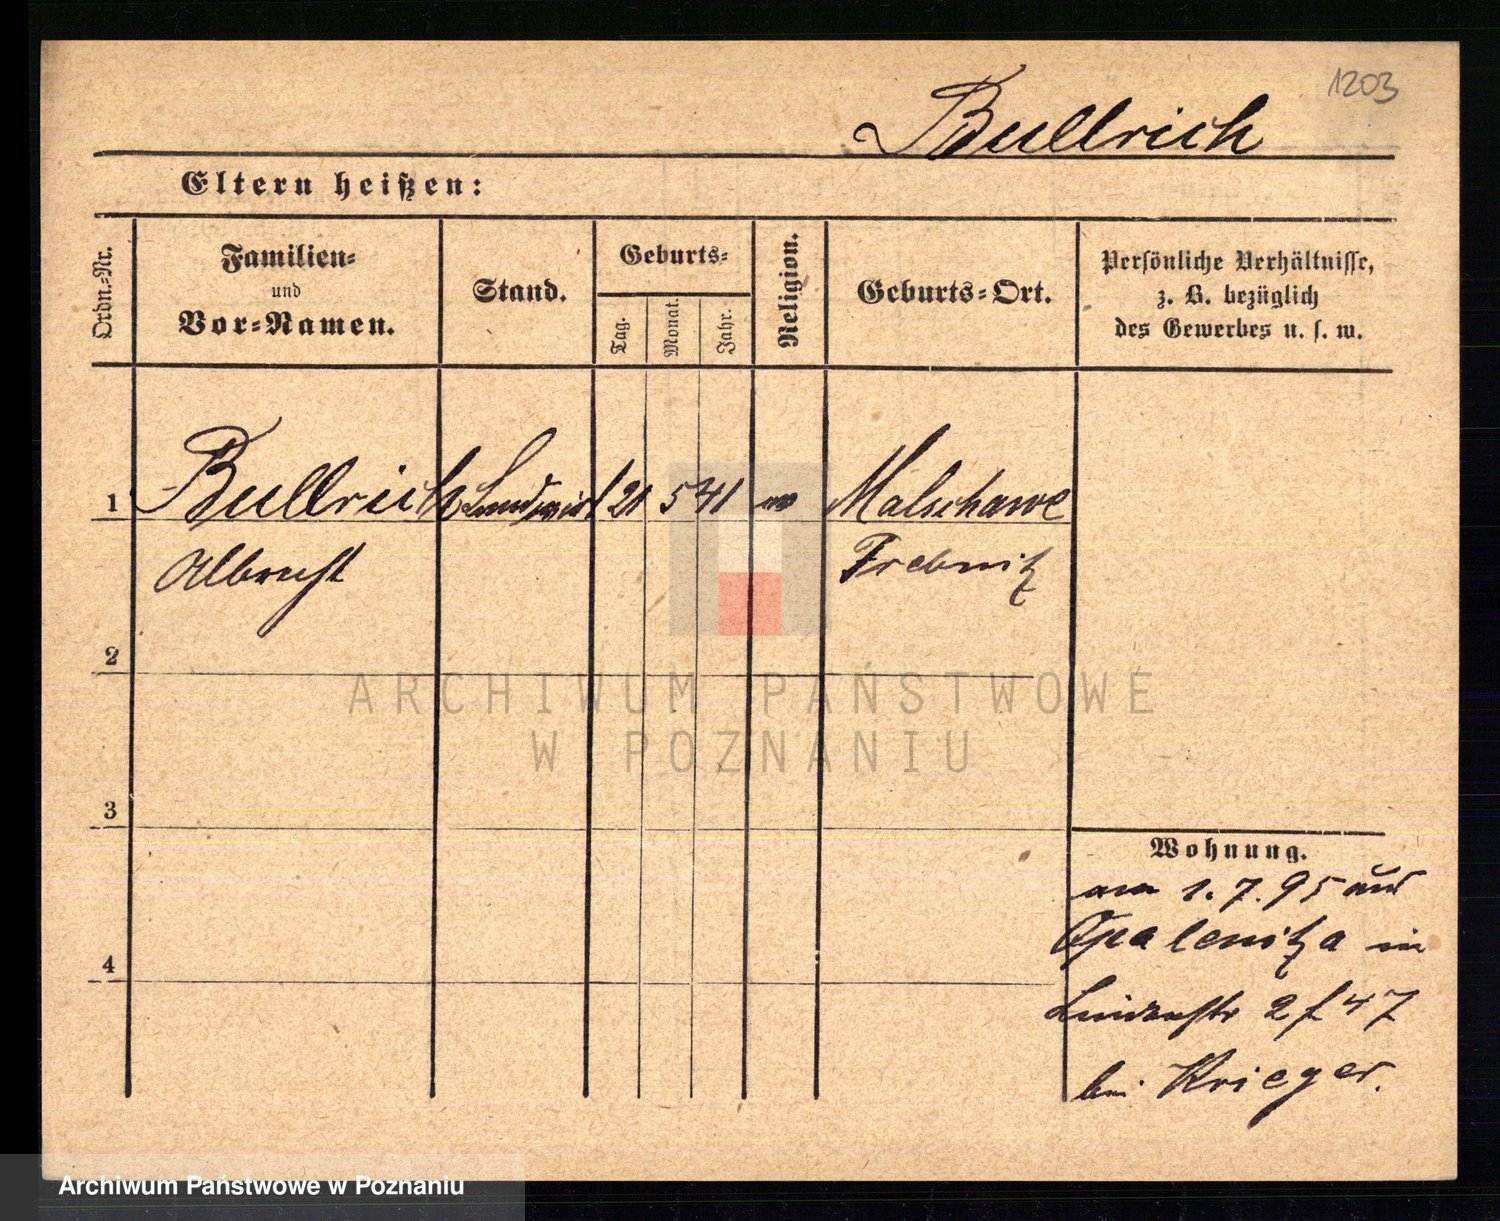 1203
Bullrich
Eltern heißen:
Ordn.-Nr.
Familien-
und
Vor-Namen.
Stand.
Geburts-
Tag.
Monat.
Jahr.
Religion.
Geburts-Ort.
Persönliche Verhältnisse,
z. B. bezüglich
des Gewerbes u. s. w.
1 Bullrich Landwirt 21 5 41 Malschawe
Albrecht Trebnitz
2
3
4
ARCHIWUM PAŃSTWOWE
W POZNANIU
Wohnung.
am 1. 7. 95 aus
Opalenitza in
Lindenstr 2 f 47
bei Krieger.
Archiwum Państwowe w Poznaniu